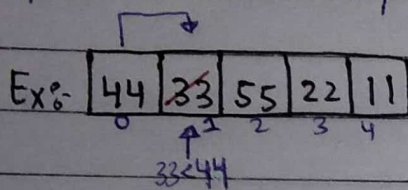 Ex:- 44 33 55 22 11
0 1 2 3 4
33<44